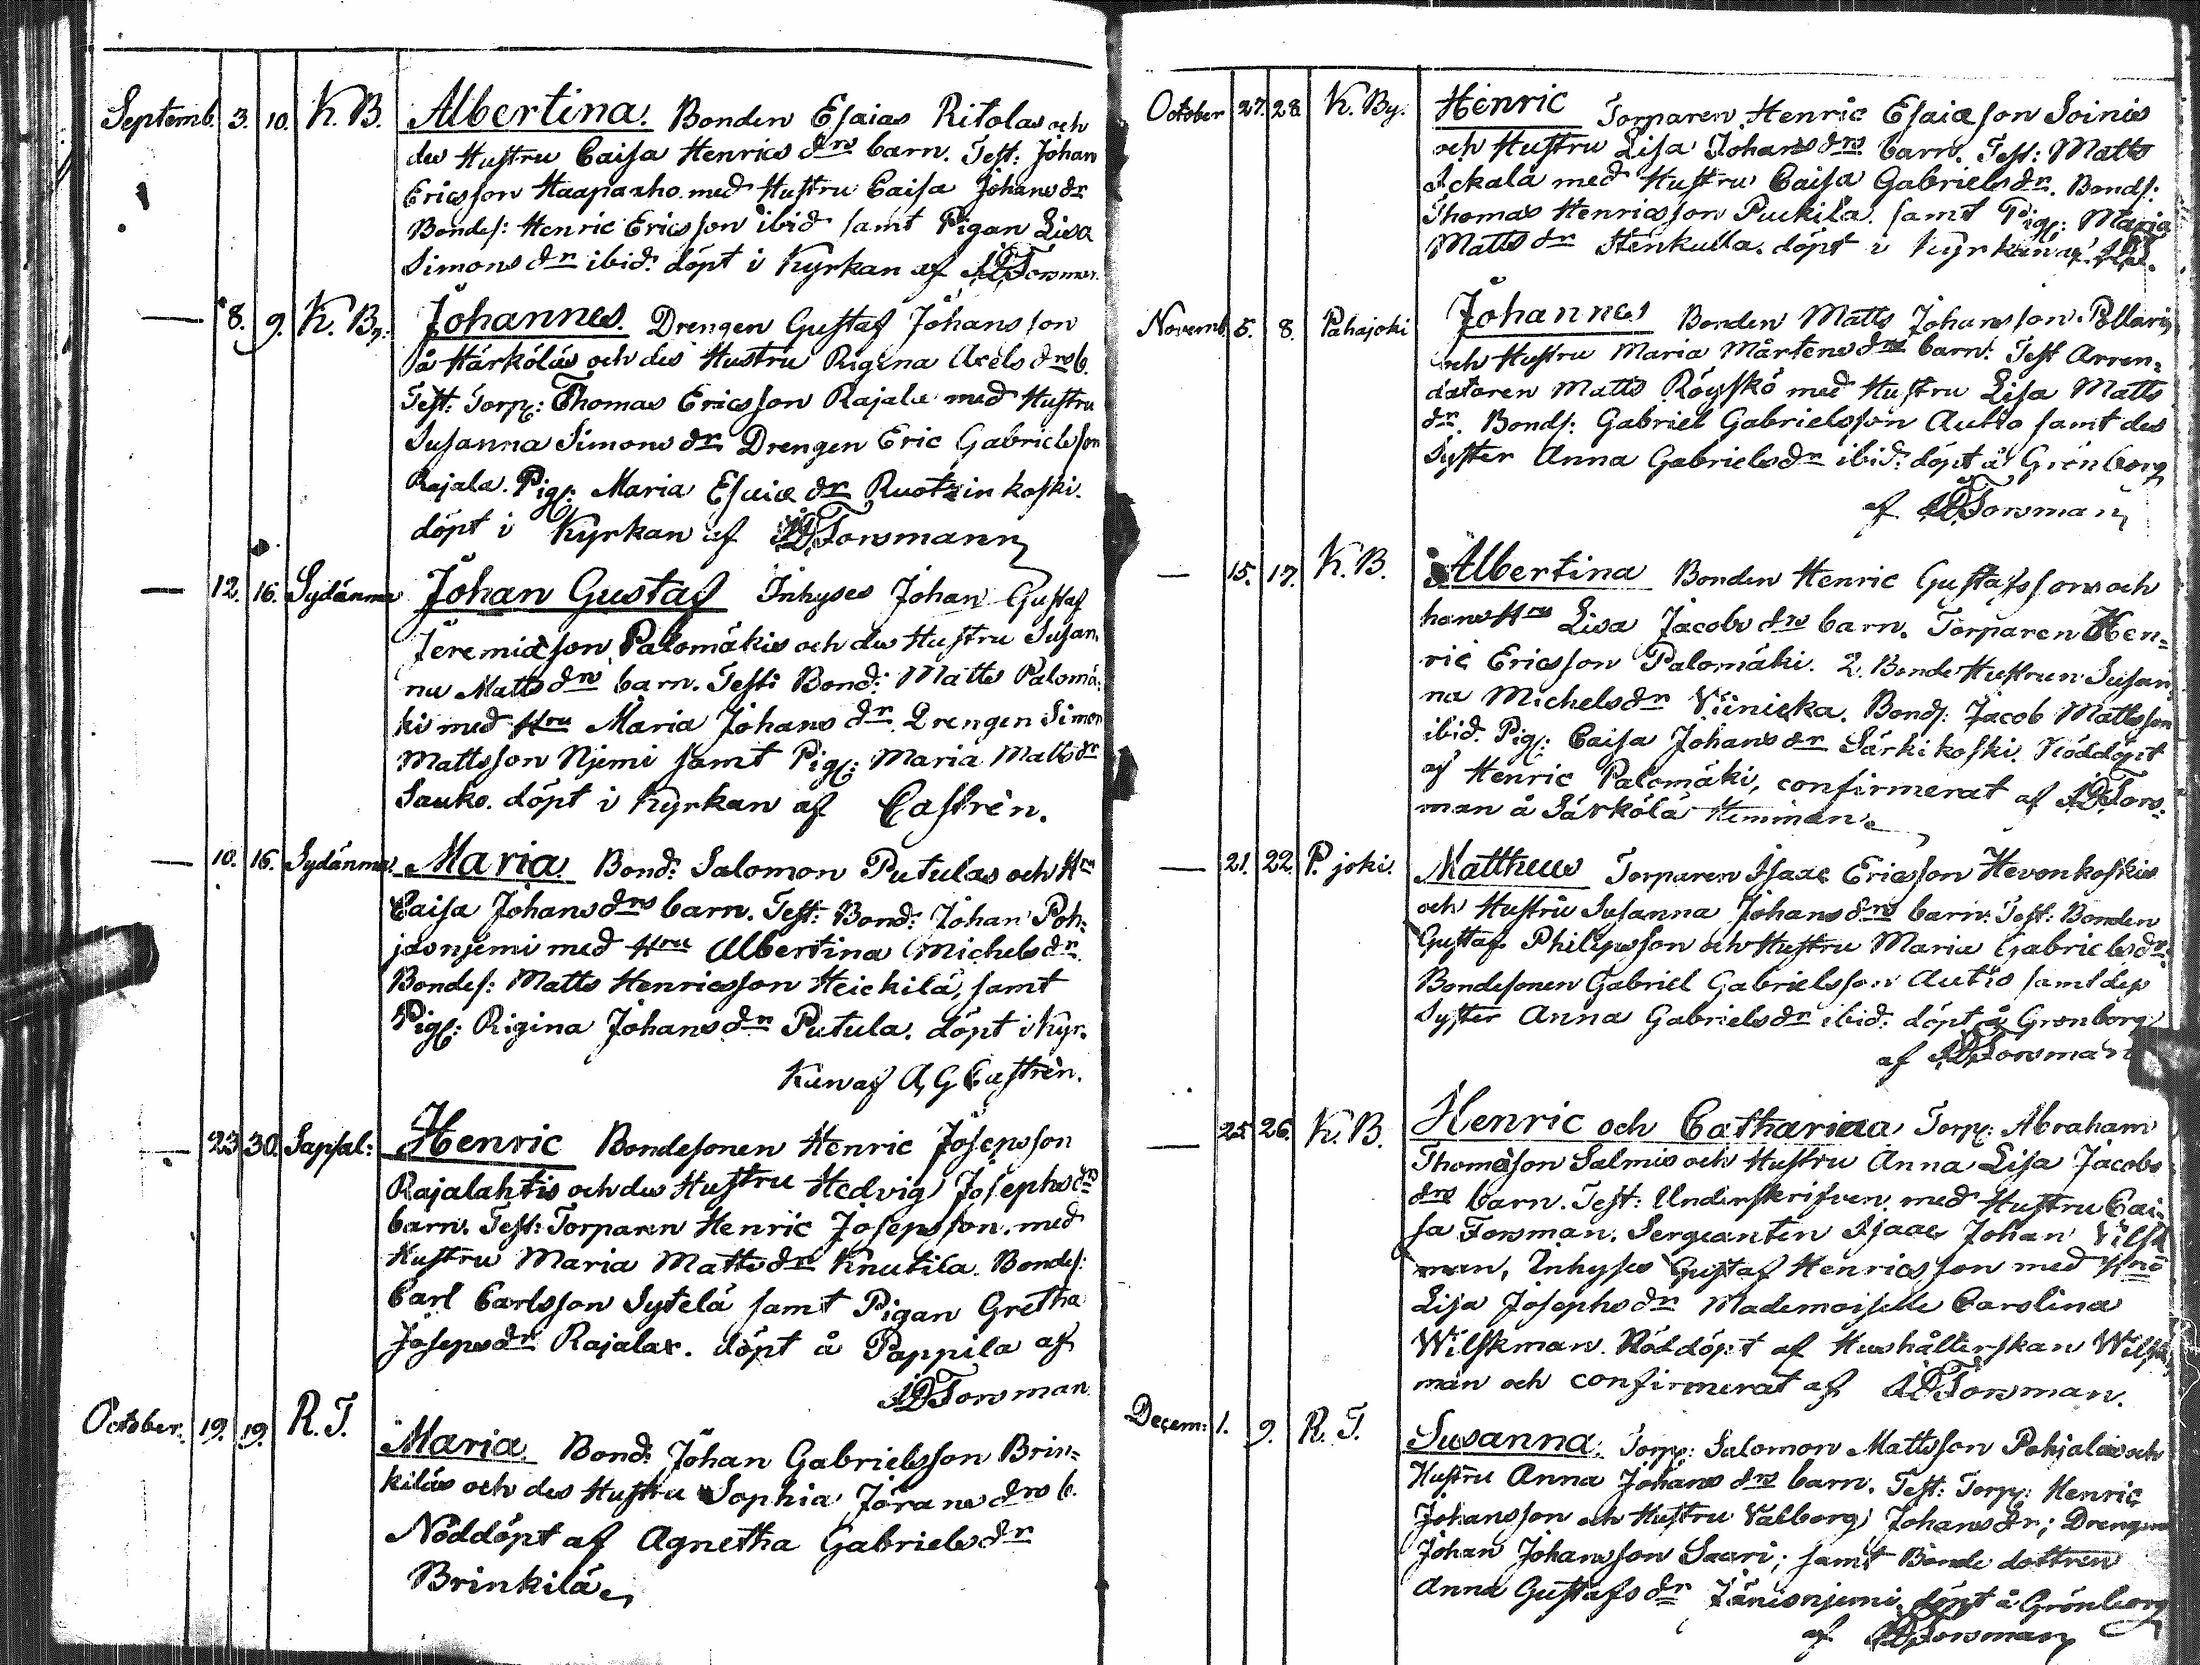 Septemb. 3. 10. K. B. Albertina. Bonden Esaias Ritolas och
des Hustru Caisa Henrics drs barn. Test: Johan
Ericsson Haapaaho med Hustru Caisa Johans dr
Bondes: Henric Ericsson ibid samt Pigan Lisa
Simons dr ibid: döpt i Kyrkan af Forsman.
— 8. 9. K. By: Johannes. Drengen Gustaf Johansson
å Härköläs och des Hustru Rigina Axels drs b.
Test: Torp: Thomas Ericsson Rajala med Hustru
Susanna Simons dr Drengen Eric Gabrielsson
Rajala. Pig: Maria Esaiæ dr Ruotzinkoski.
döpt i Kyrkan af Forsmann
— 12. 16. Sydänma Johan Gustaf Inhyses Johan Gustaf
Jeremiæson Palomäkis och des Hustru Susan,
na Matts drs barn. Test: Bond: Matts Palomä,
ki med Hru Maria Johans dr. Drengen Simon
Mattsson Njemi samt Pig: Maria Matts dr
Sauko. döpt i Kyrkan af Castrèn.
— 10. 16. Sydänma. Maria. Bond: Salomon Putulas och Hru
Caisa Johans drs barn. Test: Bond: Johan Poh,
jasnjemi med Hru Albertina Michels dr.
Bondes: Matts Henricsson Heickilä, samt
Pig: Rigina Johans dr Putula. döpt i Kyr.
kan af A, G Castrèn.
— 23 30. Sapsal: Henric Bondesonen Henric Josepsson
Rajalahtis och des Hustru Hedvig Josephs drs
barn. Test: Torparen Henric Josepsson med
Hustru Maria Matts dr Knutila. Bondes:
Carl Carlsson Sytelä samt Pigan Gretha
Joseps dr Rajalax. döpt å Pappila af
Forsman
October. 19. 19. R. T. Maria. Bond: Johan Gabrielsson Brin=
kiläs och des Hustru Sophia Jörans drs b.
Nöddöpt af Agnetha Gabriels dr
Brinkilä
October 27. 28 K. By. Henric Torparen Henric Esaiæson Soinis
och Hustru Lisa Johans drs barn. Test: Matts
Ackala med Hustru Caisa Gabriels dr. Bonds:
Thomas Henricsson Puckila. samt Pig: Maria
Matts dr Henkulla. döpt i Kyrkan af
Novemb. 5. 8. Pahajoki Johannes Bonden Matts Johansson Pollaris
och Hustru Maria Mårtens drs barn: Test Arren=
datoren Matts Röyskö med Hustru Lisa Matts
dr. Bonds: Gabriel Gabrielsson Autio samt des
Syster Anna Gabriels dr ibid: döpt å Grönborg
af Forsman
— 15. 17. K. B. Albertina Bonden Henric Gustafssons och
hans Hrus Lisa Jacobs drs barn. Torparen Hen=
ric Ericsson Palomäki. 2. Bonde Hustrun Susan,
na Michels dr Viinicka. Bonds: Jacob Mattsson
ibid. Pig: Caisa Johans dr Särkikoski. Nöddöpt
af Henric Palomäki, confirmerat af Fors=
man å Särkölä Hemman.
— 21. 22. P. joki. Mattheus Torparen Isaac Ericsson Hevonkoskis
och Hustru Susanna Johans drs barn: Test: Bonden
Gustaf Philipsson och Hustru Maria Gabriels dr.
Bondesonen Gabriel Gabrielsson Autio samt des
Syster Anna Gabriels dr ibid: döpt å Grönborg
af Forsman
— 25 26. K. B. Henric och Catharina Torp: Abraham
Thomæson Salmis och Hustru Anna Lisa Jacobs
drs barn. Test: Underskrifven med Hustru Cai=
sa Forsman. Sergeanten Isaac Johan Vilsk
man, Inhyses Gustaf Henricsson med
Lisa Josephs dr Mademoiselle Carolina
Wilskman. Nöddöpt af Hushållerskan Wilsk,
man och confirmerat af Forsman.
Decem: 1. 9. R. T. Susanna. Torp: Salomon Mattsson Pohjalas och
Hustru Anna Johans drs barn. Test: Torp: Henric
Johansson och Hustru Valborg Johans dr; Drengen
Johan Johansson Saari; samt Bonde dottren
Anna Gustafs dr Jänisnjemi, döpt å Grönborg
af Forsman